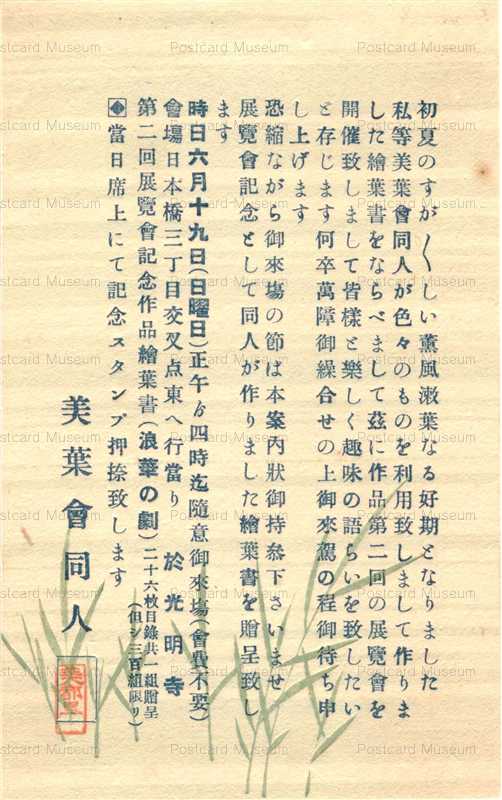 初夏のすが〳〵しい薫風漵葉なる好期となりました
私等美葉會同人が色々のものを利用致しまして作りま
した繪葉書をならべまして玆に作品第二回の展覽會を
開催致しまして皆樣と樂しく趣味の語らいを致したい
と存じます何卒萬障御繰合せの上御來駕の程御待ち申
し上げます
恐縮ながら御來塲の節は本案內狀御持叅下さいませ
展覽會記念として同人が作りました繪葉書を贈呈致し
ます
時日六月十九日(日曜日)正午ゟ四時迄隨意御來塲(會費不要)
會塲日本橋三丁目交叉点東へ行當り 於光明寺
第二回展覽會記念作品繪葉書(浪華の劇)二十六枚目錄共一組贈呈
(但シ三百組限り)
當日席上にて記念スタンプ押捺致します
美葉會同人
Postcard Museum